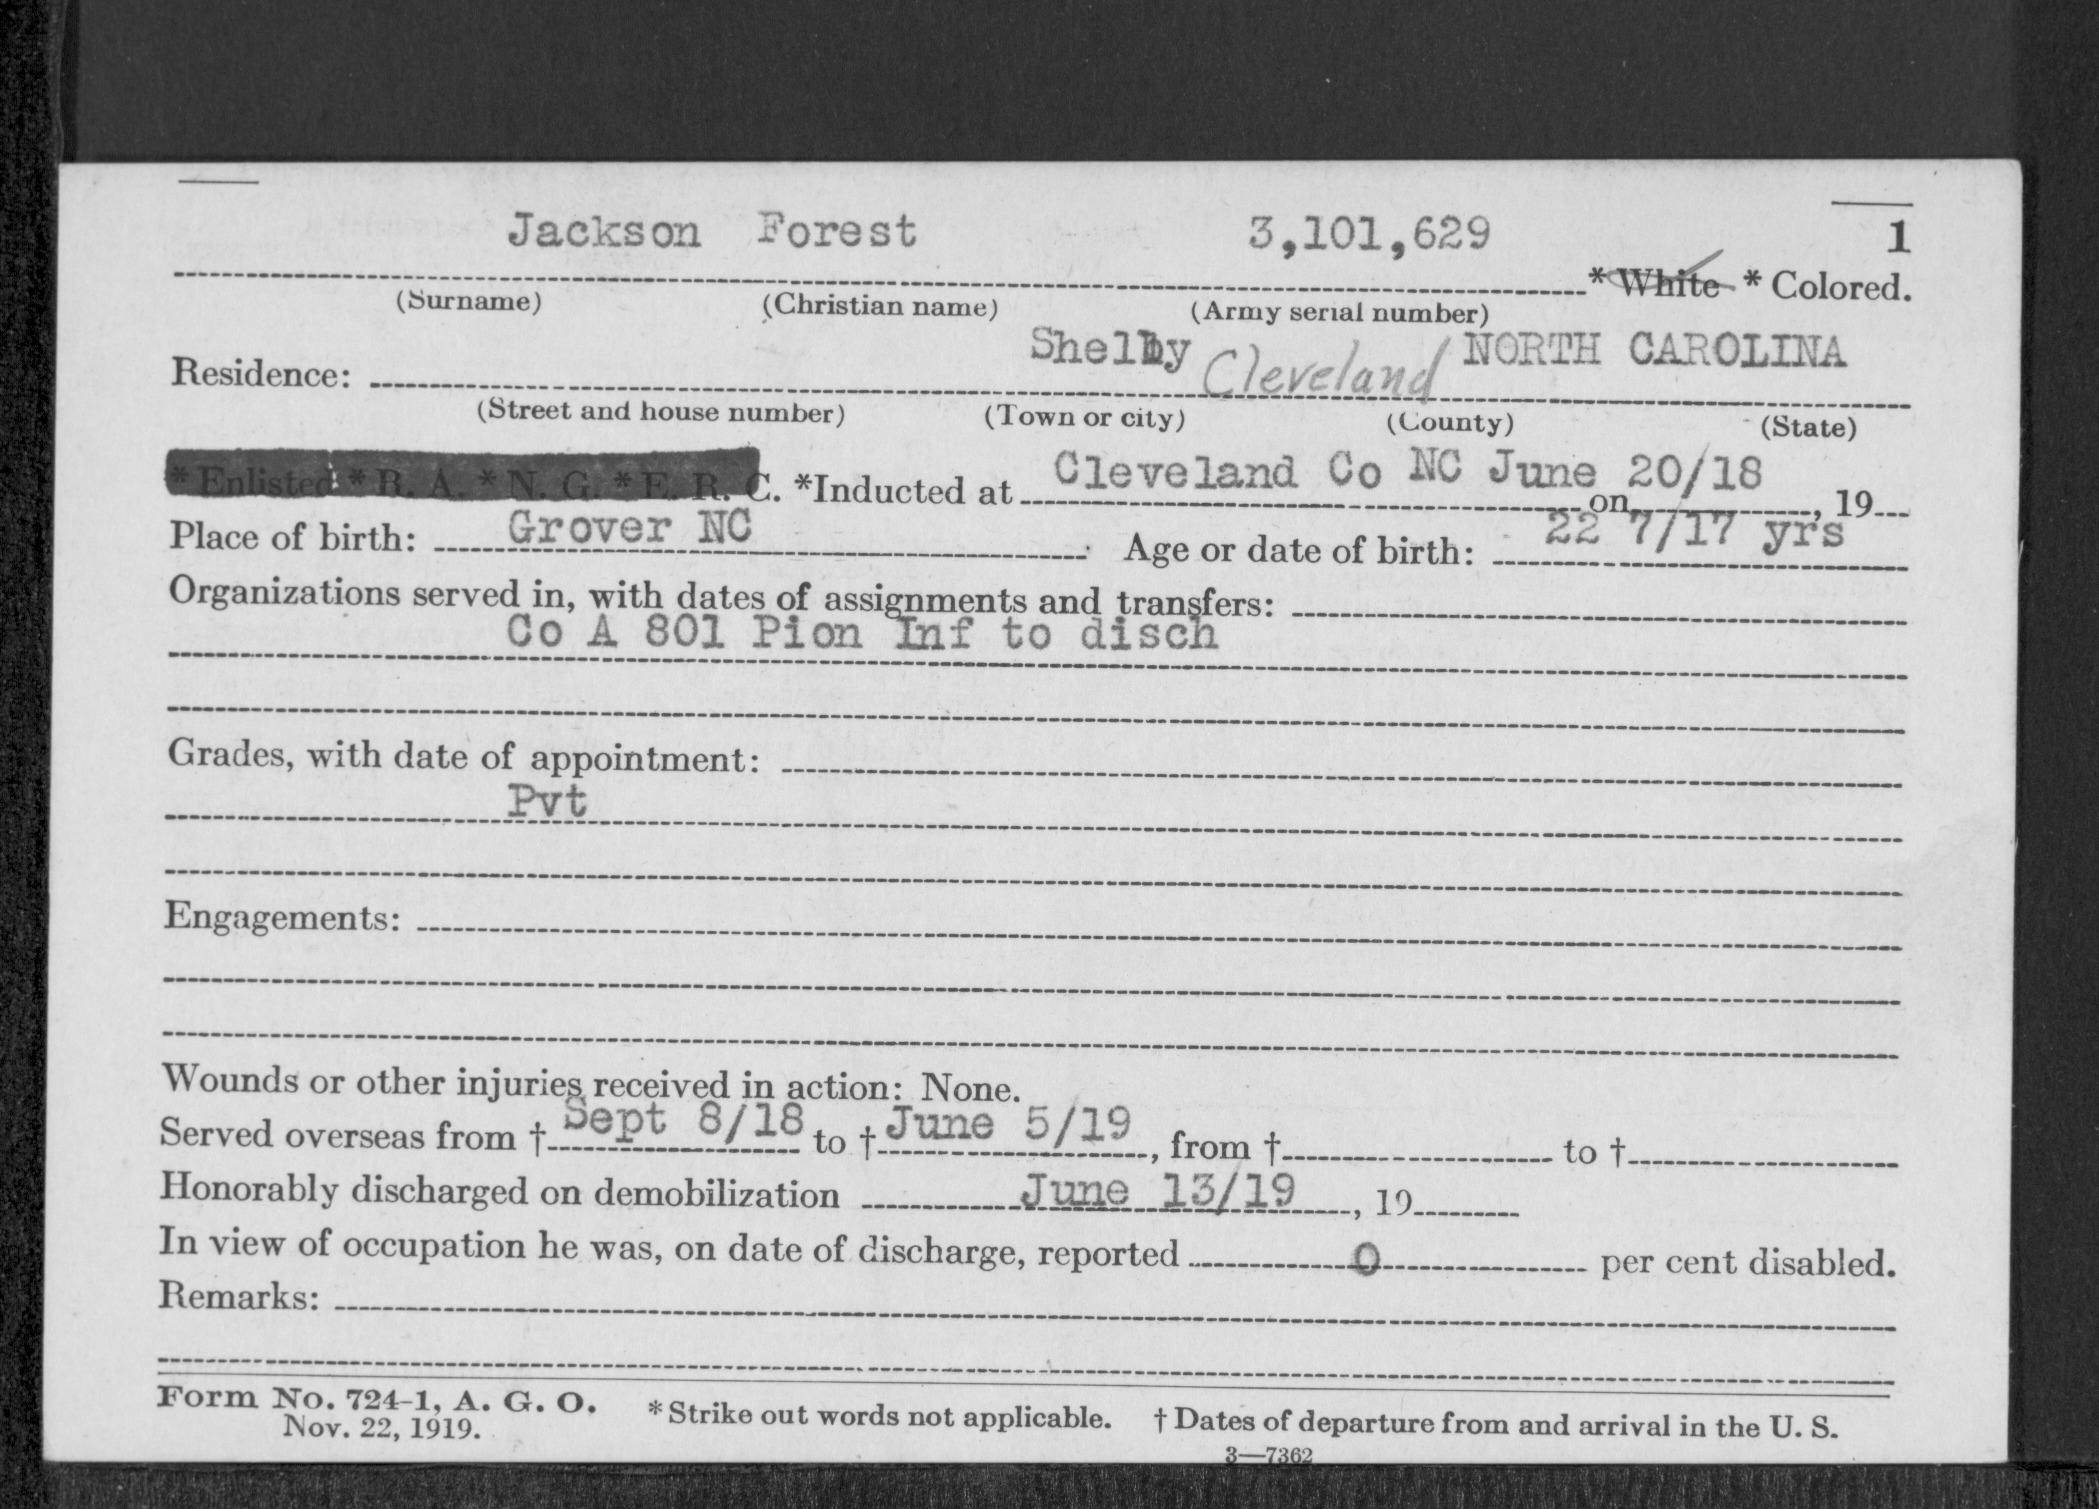 Jackson Forest 3,101,629 1
* White * Colored.
(Surname) (Christian name) (Army serial number)
Residence: Shelby Cleveland NORTH CAROLINA
(Street and house number) (Town or city) (County) (State)
* Enlisted * R. A. * N. G. * E. R. C. *Inducted at Cleveland Co NC June 20/18 on , 19
Place of birth: Grover NC Age or date of birth: 22 7/17 yrs
Organizations served in, with dates of assignments and transfers:
Co A 801 Pion Inf to disch
Grades, with date of appointment:
Pvt
Engagements:
Wounds or other injuries received in action: None.
Served overseas from † Sept 8/18 to † June 5/19, from † to †
Honorably discharged on demobilization June 13/19, 19
In view of occupation he was, on date of discharge, reported 0 per cent disabled.
Remarks:
Form No. 724-1, A. G. O. * Strike out words not applicable. † Dates of departure from and arrival in the U. S.
Nov. 22, 1919.
3—7362